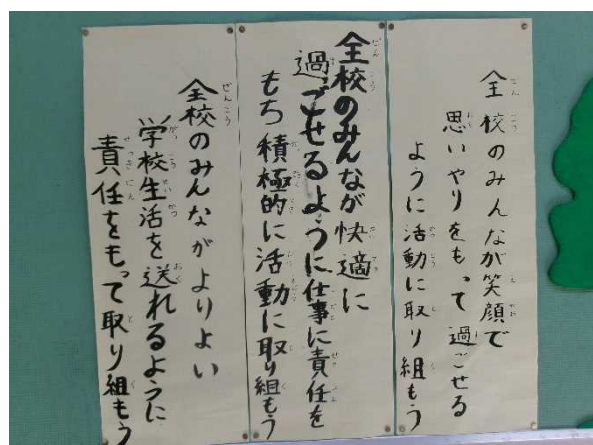 全校のみんなが笑顔で
思いやりをもって過ごせる
ように活動に取り組もう
全校のみんなが快適に
過ごせるように仕事に責任を
もち積極的に活動に取り組もう
全校のみんながよりよい
学校生活を送れるように
責任をもって取り組もう